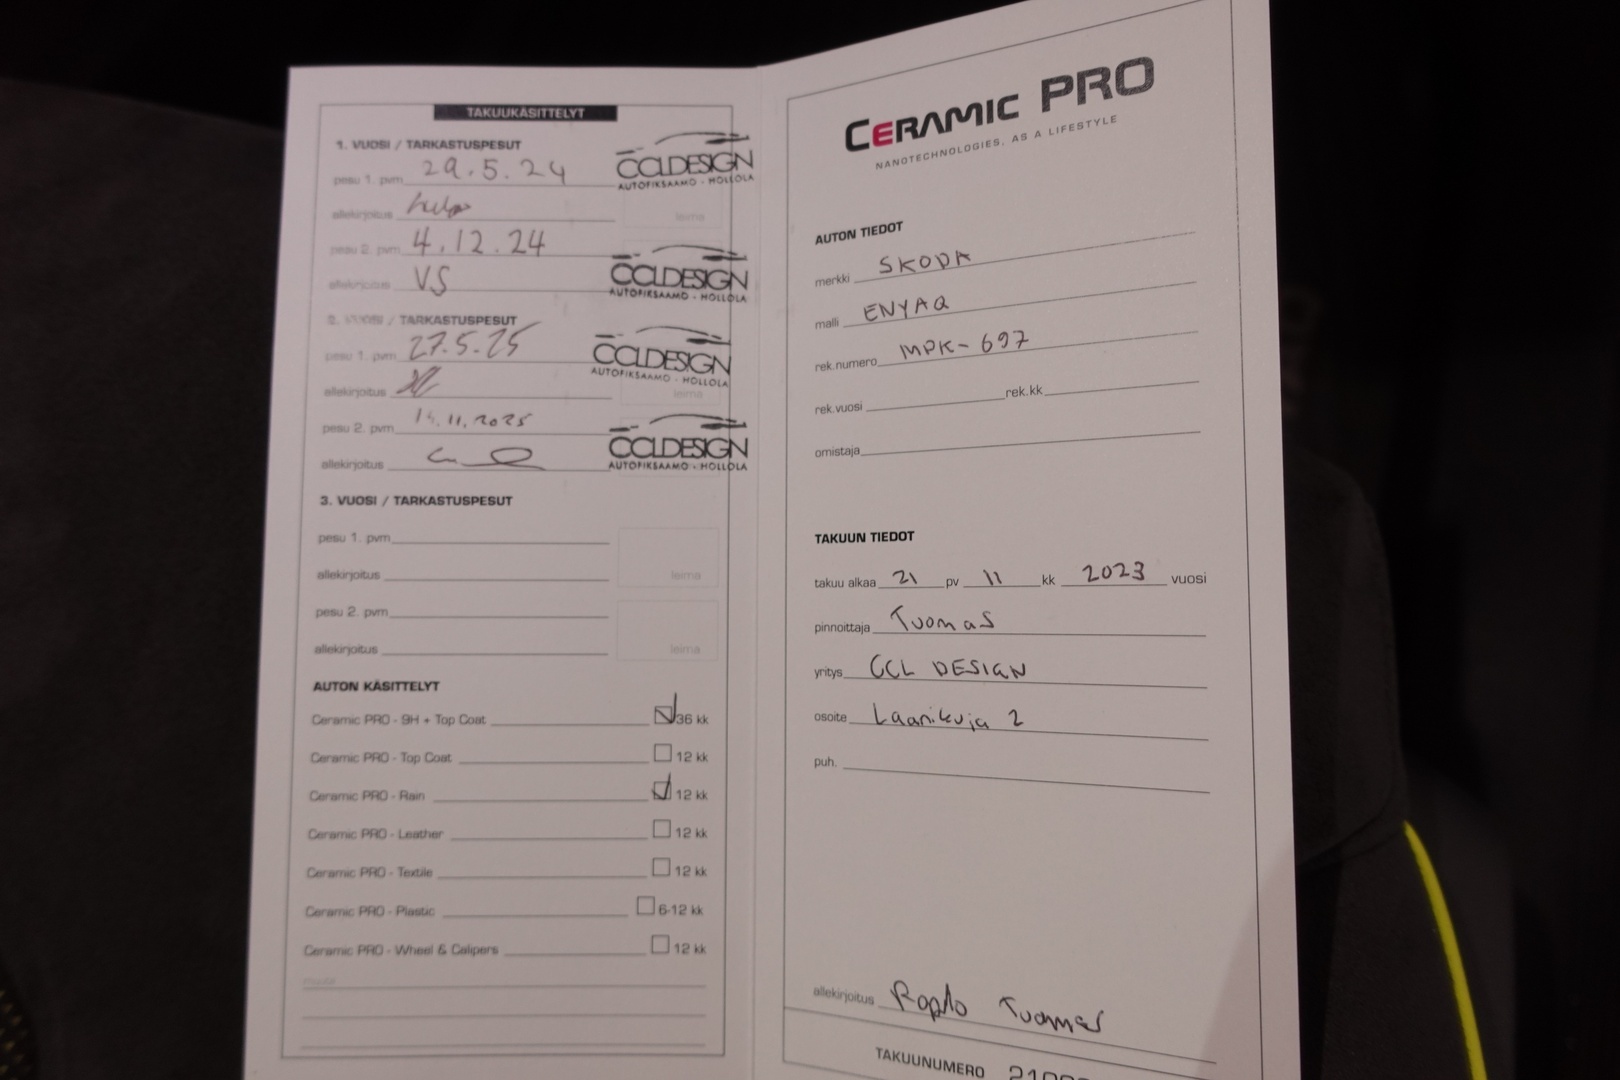 TAKUUKÄSITTELYT
1. VUOSI / TARKASTUSPESUT
pesu 1. pvm 29.5.24
CCLDESIGN
AUTOFIKSAAMO - HOLLOLA
allekirjoitus
leima
pesu 2. pvm 4.12.24
allekirjoitus VS
CCLDESIGN
AUTOFIKSAAMO - HOLLOLA
2. VUOSI / TARKASTUSPESUT
pesu 1. pvm 27.5.25
CCLDESIGN
AUTOFIKSAAMO - HOLLOLA
allekirjoitus
leima
pesu 2. pvm
allekirjoitus
CCLDESIGN
AUTOFIKSAAMO - HOLLOLA
3. VUOSI / TARKASTUSPESUT
pesu 1. pvm
allekirjoitus
leima
pesu 2. pvm
allekirjoitus
leima
AUTON KÄSITTELYT
Ceramic PRO - 9H + Top Coat 36 kk
Ceramic PRO - Top Coat 12 kk
Ceramic PRO - Rain 12 kk
Ceramic PRO - Leather 12 kk
Ceramic PRO - Textile 12 kk
Ceramic PRO - Plastic 6-12 kk
Ceramic PRO - Wheel & Calipers 12 kk
CERAMIC PRO
NANOTECHNOLOGIES, AS A LIFESTYLE
AUTON TIEDOT
merkki SKODA
malli ENYAQ
rek.numero MPK-697
rek.vuosi rek.kk
omistaja
TAKUUN TIEDOT
takuu alkaa 21 pv 11 kk 2023 vuosi
pinnoittaja Tuomas
yritys CCL DESIGN
osoite Laanikuja 2
puh.
allekirjoitus Tuomas
TAKUUNUMERO